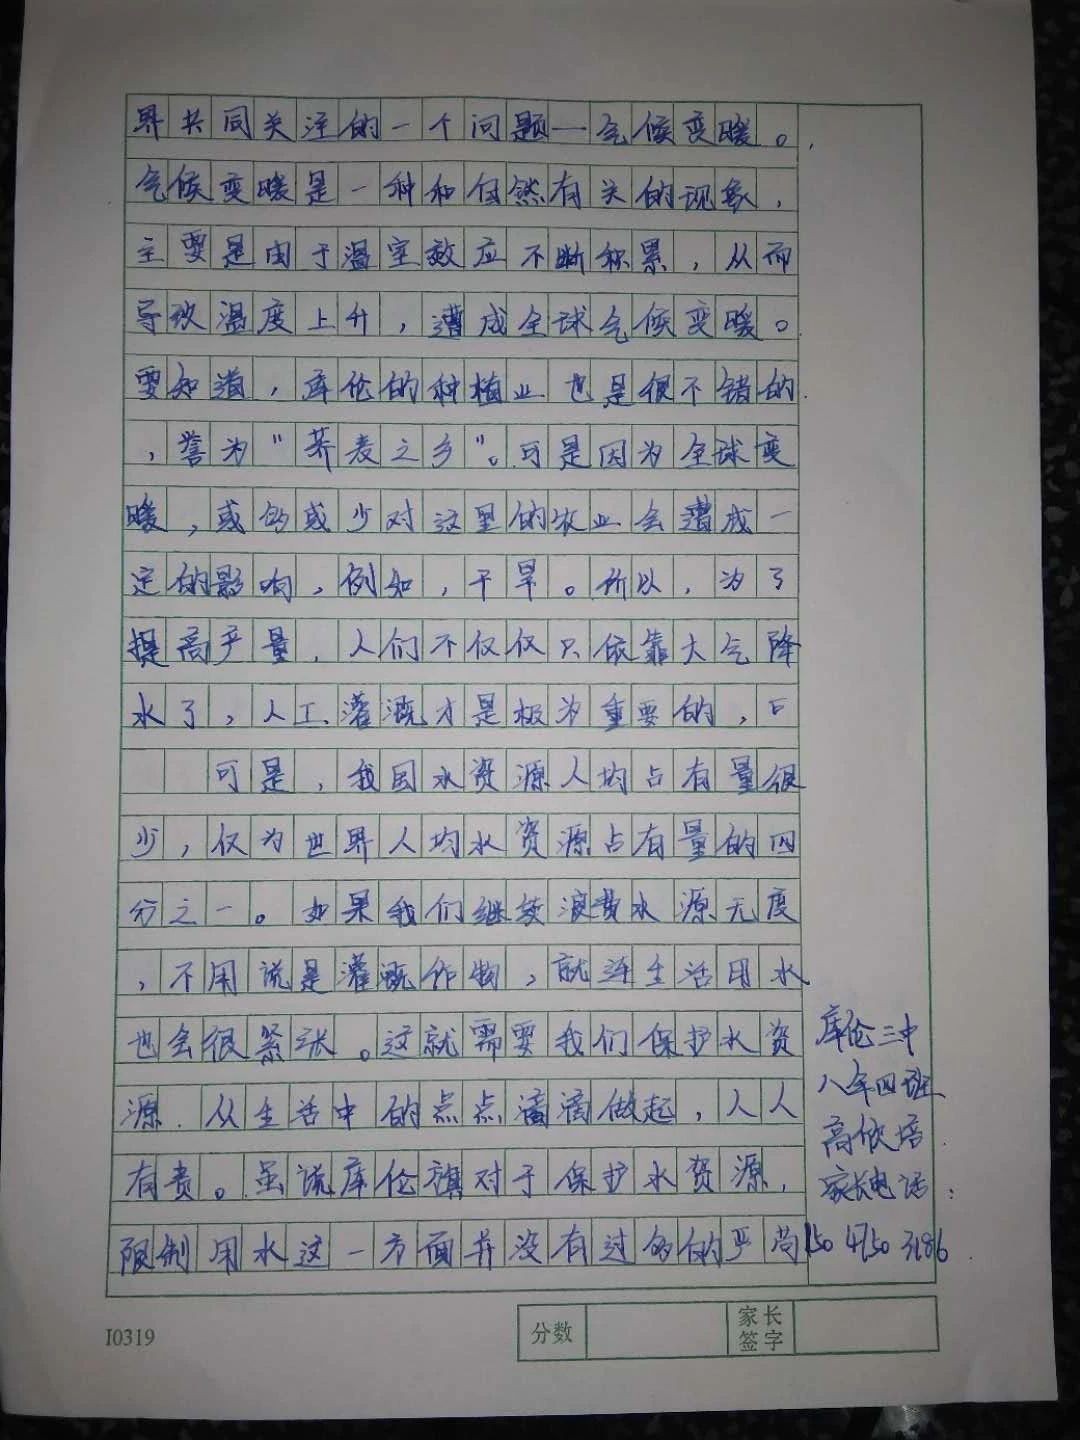 界共同关注的一个问题—气候变暖。
气候变暖是一种和自然有关的现象，
主要是由于温室效应不断积累，从而
导致温度上升，遭成全球气候变暖。
要知道，库伦的种植业也是很不错的
，誉为"荞麦之乡"。可是因为全球变
暖，或多或少对这里的农业会遭成一
定的影响，例如，干旱。所以，为了
提高产量，人们不仅仅只依靠大气降
水了，人工灌溉才是极为重要的，
可是，我国水资源人均占有量很
少，仅为世界人均水资源占有量的四
分之一。如果我们继续浪费水源无度
，不用说是灌溉作物，就连生活用水
也会很紧张。这就需要我们保护水资
源．从生活中的点点滴滴做起，人人
有责。虽说库伦旗对于保护水资源，
限制用水这一方面并没有过多的严苛
库伦三中
八年四班
高依培
家长电话：
150 4750 3186
I0319
分数
家长
签字